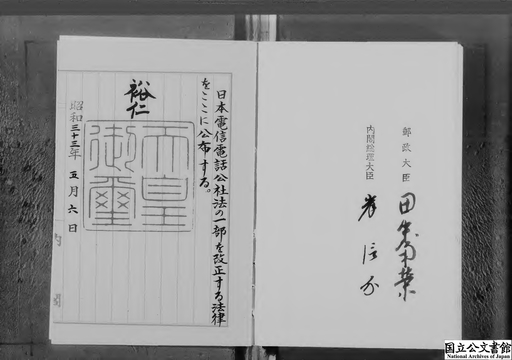 日本電信電話公社法の一部を改正する法律
をここに公布する。
裕仁
天皇
御璽
昭和三十三年五月六日
郵政大臣
田中角榮
内閣総理大臣
岸信介
国立公文書館
National Archives of Japan